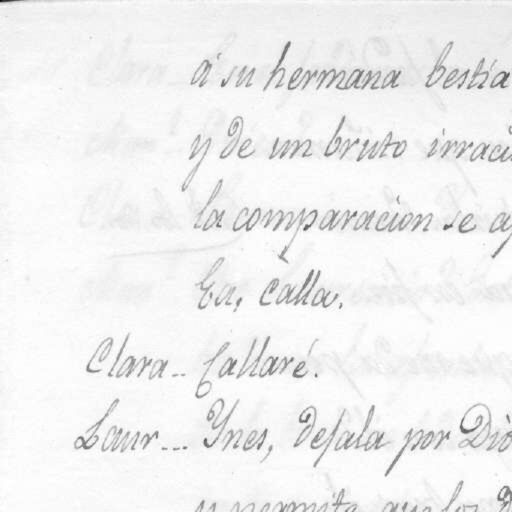 á su hermana bestia
y de un bruto irraci
la comparacion se a
Ea, calla.
Clara -- Callaré.
Laur --- Ynes, dejala por Dio
y permite que los d